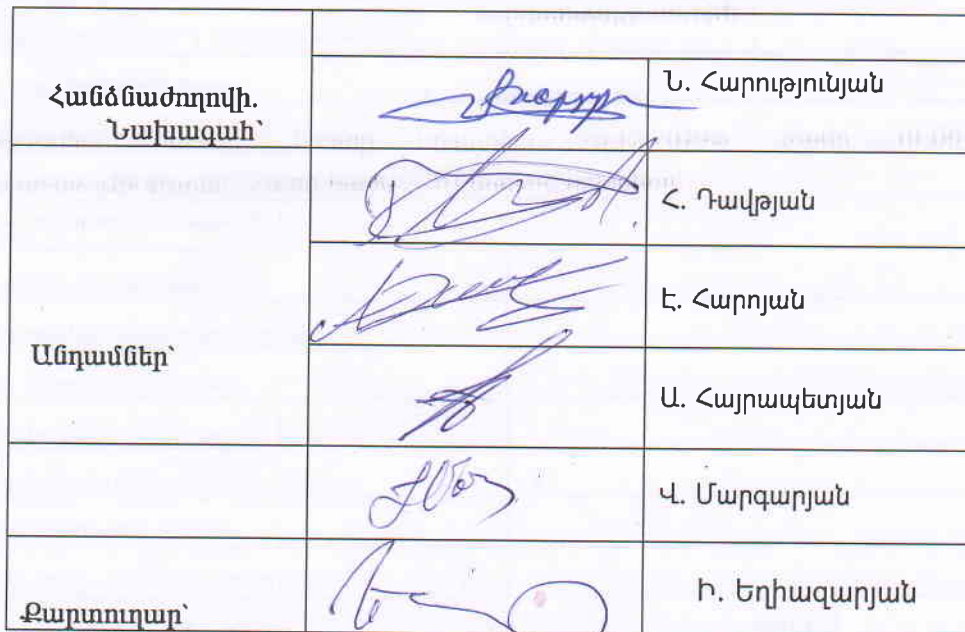 Հանձնաժողովի.
Նախագահ՝
Ն. Հարությունյան
Հ. Դավթյան
Է. Հարոյան
Անդամներ՝
Ա. Հայրապետյան
Վ. Մարգարյան
Քարտուղար՝
Ի. Եղիազարյան